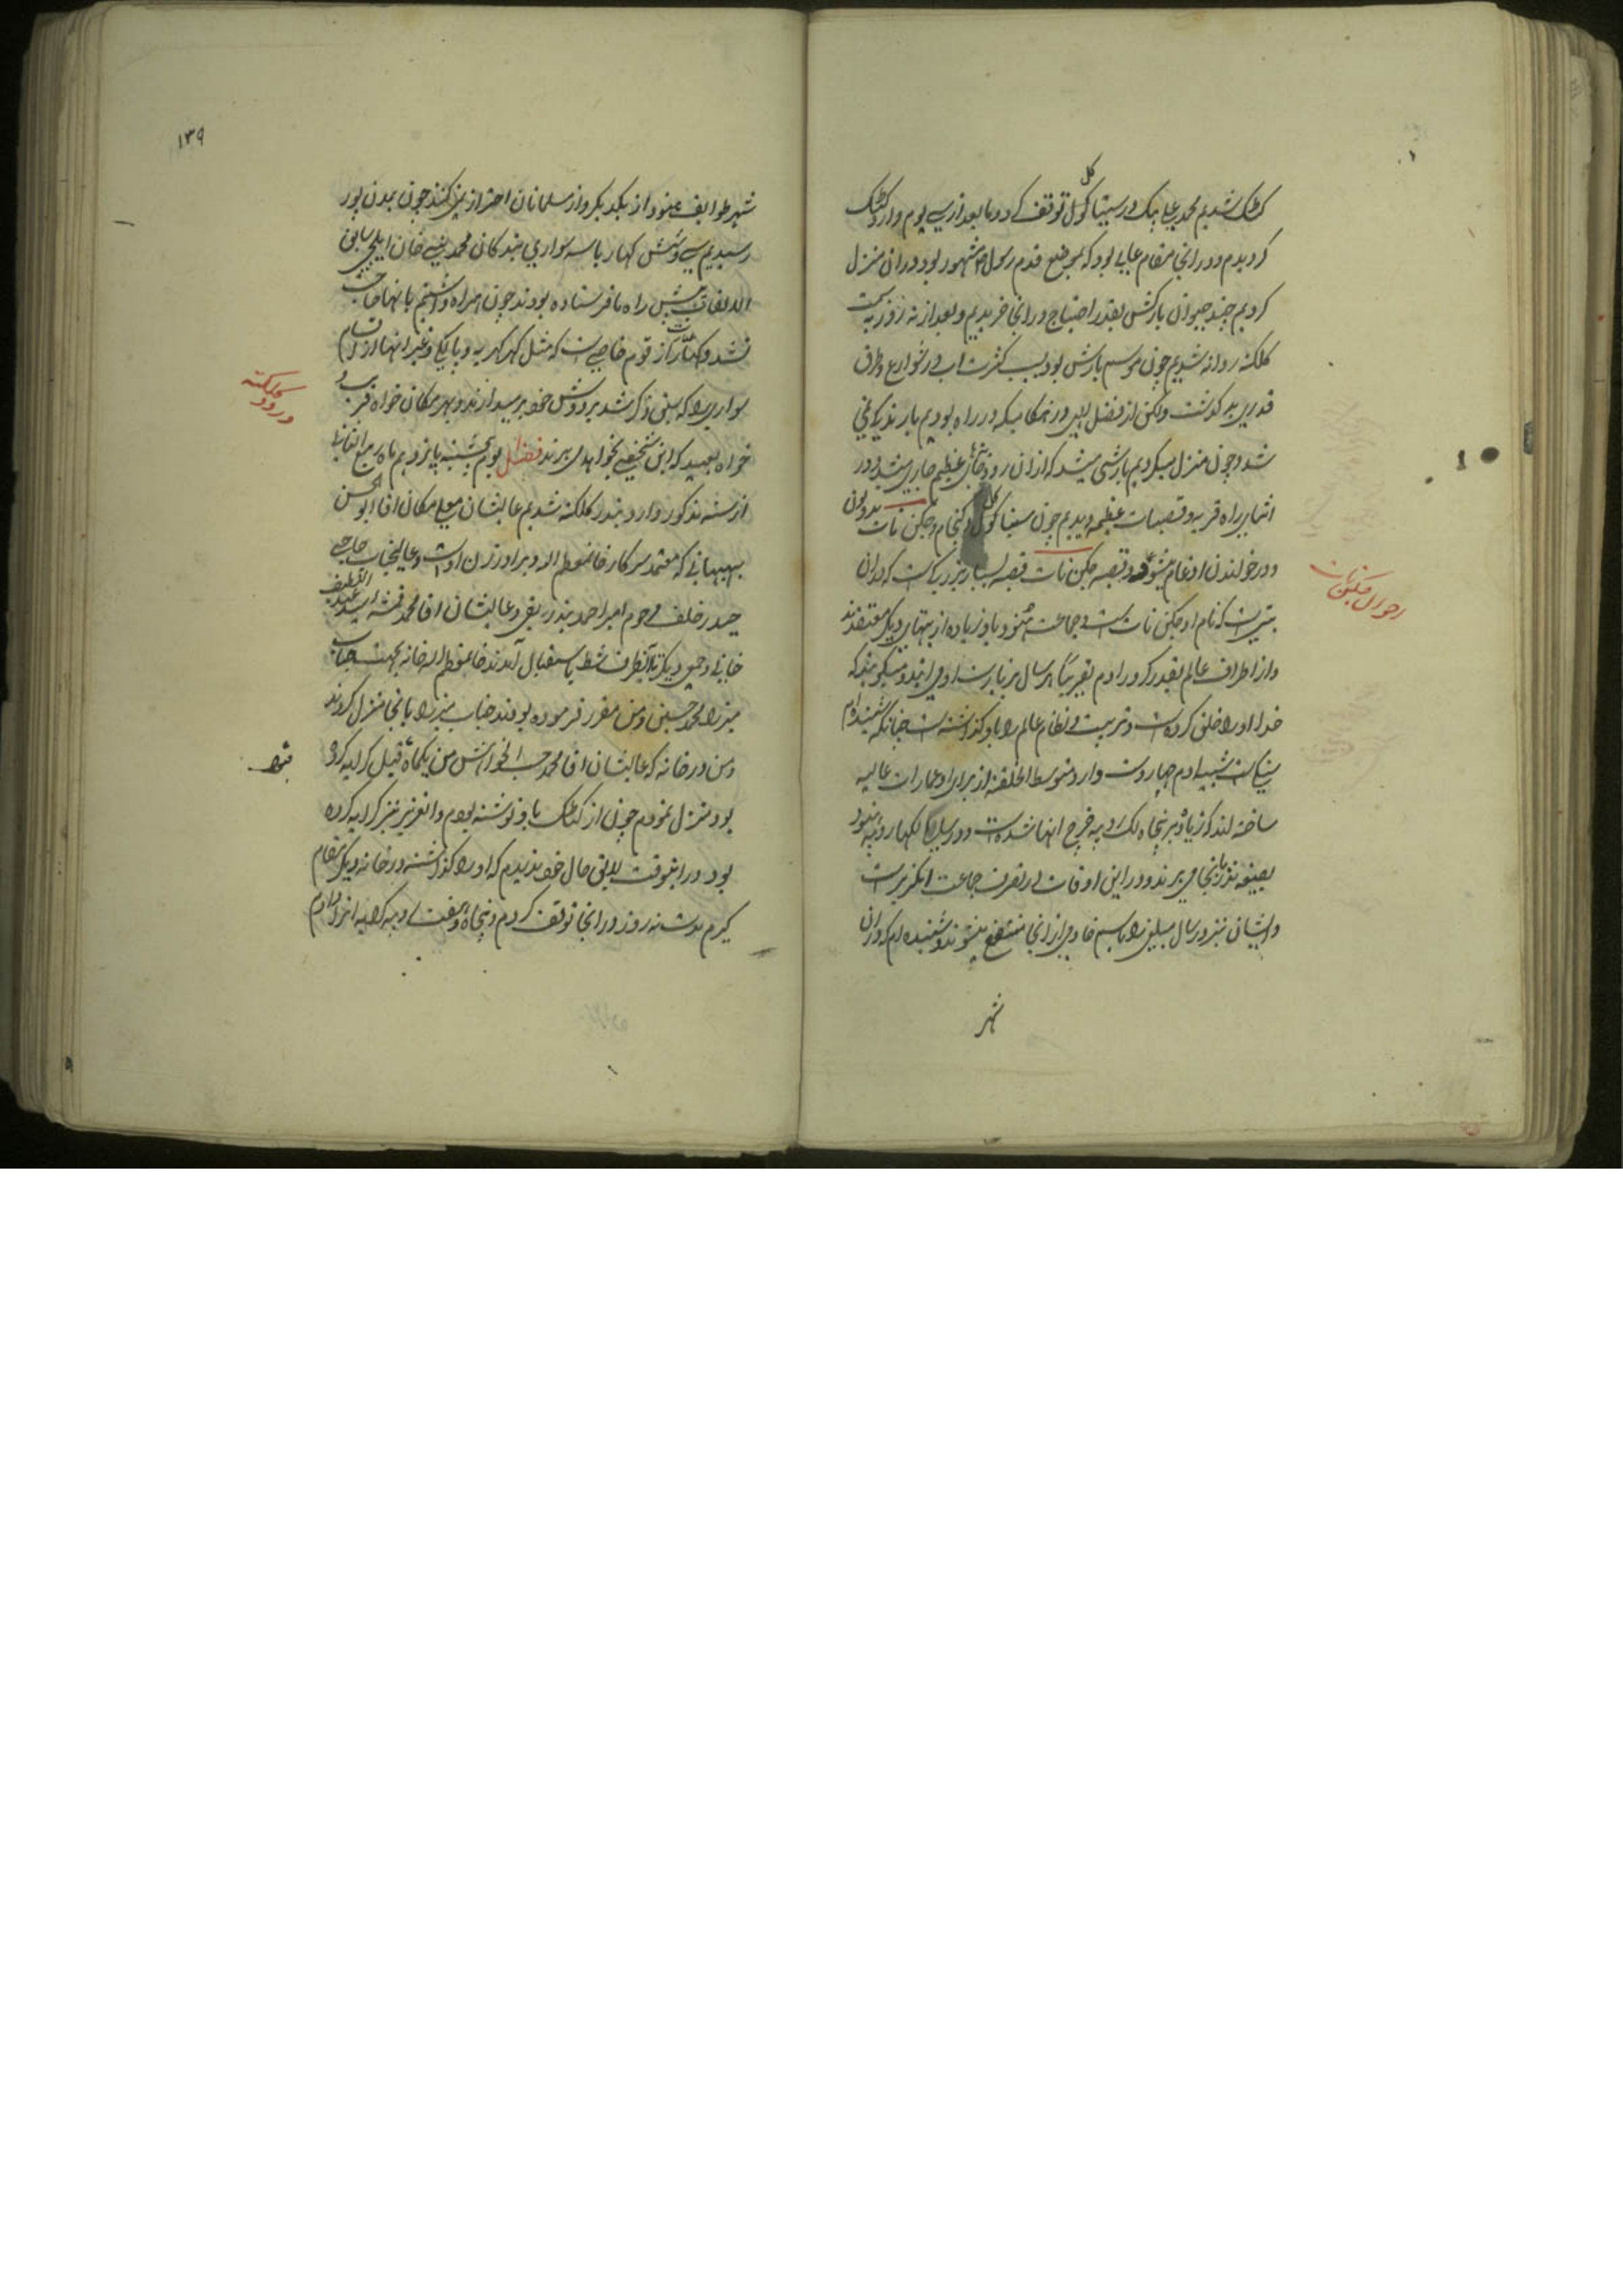 کتک شدیم محمد علی بیک در سیتاکول توقف کرد و ما بعد از سی یوم وارد کتک
کردیدم و در انجا مقام عالی بود که بموضع قدم رسول مشهور بود در ان منزل
کردیم چند حیوان بارکش بقدر احتیاج در انجا خریدیم و بعد از نه روز به سمت
کلکته روانه شدیم چون موسم بارش بود بسبب کثرت اب در شوارع و طرق
قدری بد کذشت ولکن از فضل الهی در هنکامیکه در راه بودیم بارندیکی نمی
شد و چون منزل میکردیم بارشی میشد که از ان رودخانهای عظیم جاری میشد و در
اثنای راه قریه و قصبات عظیمه دیدیم چون سیتاکول و کنجام و جکن نات
و در خواندن ادغام میشود و قصبه جکن نات قصبه بسیار بزرکیست که در ان
بتی است که نام او جکن نات است و جماعت هنود باو زیاده از بتهای دیکر معتقدند
و از اطراف عالم بقدر کرور ادم تقریبا هر سال بزیارت او می ایند و میکویند که
خدا او را خلق کرده است و تربیت و نظام عالم را باو کذاشته است چنانکه شنیده ام
بت شبیه ادم چهار دست دارد متوسط الخلقه از برای او عمارات عالیه
ساخته اند که زیاده بر پنجاه لک روپیه خرج انها شده است و در سال لکها روپیه هنود
بصیغه نذر بانجا می برند و در این اوقات در تصرف جماعت انکریز است
و ایشان نیز در سال مبلغی را باسم خادمی از انجا منتفع میشوند و شنیده ام که در ان
شهر
احوال جکن نات
۱۳۹
شهر طوایف هنود از یکدیکر و از مسلمانان احتراز نمی کنند چون بمدن پور
رسیدیم سی و شش کهار با سه سواری بندکان محمد نبی خان ایلچی سابق
پیش راه ما فرستاده بودند چون همراه داشتم بانها حاجت
نشد و کهار از قوم خاصی است که مثل کهر کهریه و پالکی و غیر انها از اقسام
سواری را که سبق ذکر شد بر دوش خود برمیدارند و بهر مکان خواه قریب و
خواه بعید که این شخص بخواهد می برند فصل یوم پنجشنبه پانزدهم ماه ربیع الثانی
از سنه مذکور وارد بندر کلکته شدیم عالیشان معلی مکان اقا ابوالحسن
بهبهانی که معتمد سرکار خان معظم الیه و برادر زن اوست و عالیجناب حاجی
حیدر خلف مرحوم امیر احمد بندر ریقی و عالیشان اقا محمد
خانی و جمعی دیکر تا انطرف شط باستقبال آمدند خان معظم الیه خانه بجهت جناب
میرزا محمد حسین و من مقرر فرموده بودند جناب میرزا بانجا منزل کردند
و من در خانه که عالیشان اقا محمد حسب الخواهش من یکماه قبل کرایه کرده
بود منزل نمودم چون از کتک باو نوشته بودم و انعزیز نیز کرایه کرده
بود در اینوقت لایق حال خود ندیدم که او را کذاشته در خانه دیکر مقام
کیرم مدت نه روز در انجا توقف کردم و پنجاه و هفت روپیه کرایه انرا دادم
ورود کلکته